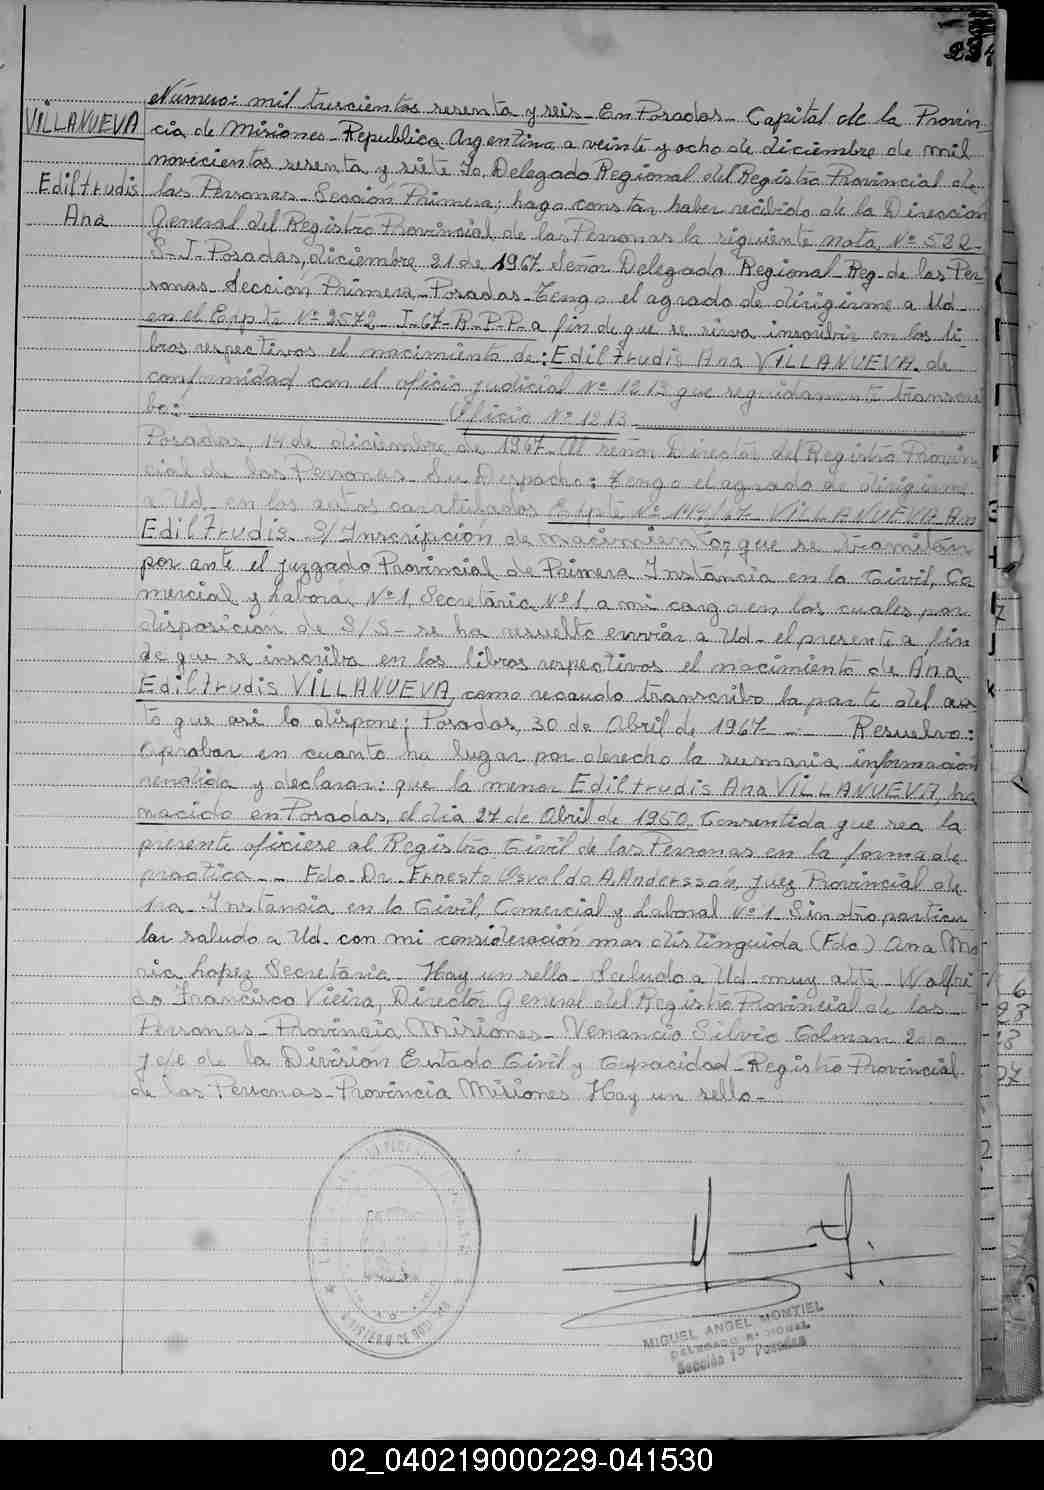 234
VILLANUEVA
Ediltrudis
Ana
Número: mil trescientos sesenta y seis - En Posadas - Capital de la Provin-
cia de Misiones - Republica Argentina a veinte y ocho de diciembre de mil
novicientos sesenta y siete Yo, Delegado Regional del Registro Provincial de
las Personas - Sección Primera; hago constar haber recibido de la Direccion
General del Registro Provincial de las Personas la siguiente nota, Nº 522-
S-I- Posadas, diciembre 21 de 1967. Señor Delegado Regional - Reg- de las Per
sonas - Seccion Primera - Posadas - Tengo el agrado de dirigirme a Ud-
en el Expte Nº 2572 - I-67-R-P-P- a fin de que se sirva inscribir en los li-
bros respectivos el nacimiento de: Ediltrudis Ana VILLANUEVA. de
conformidad con el oficio judicial Nº 1213 que seguidamente transcri
be: Oficio Nº 1213
Posadas, 14 de diciembre de 1967 - Al señor Director del Registro Provin
cial de las Personas - Su Despacho: Tengo el agrado de dirigirme
a Ud- en los autos caratulados Expte Nº VILLANUEVA Ana
Ediltrudis - S/ Inscripción de nacimiento, que se tramitan
por ante el juzgado Provincial de Primera Instancia en lo Civil, Co
mercial y Laboral Nº 1, Secretaria Nº 1, a mi cargo en los cuales por
disposicion de S/S- se ha resuelto enviar a Ud- el presente a fin
de que se inscriba en los libros respectivos el nacimiento de Ana
Ediltrudis VILLANUEVA, como recaudo transcribo la parte del au
to que asi lo dispone; Posadas, 30 de Abril de 1967 - Resuelvo:
Aprobar en cuanto ha lugar por derecho la sumaria información
rendida y declarar: que la menor Ediltrudis Ana VILLANUEVA, ha
nacido en Posadas, el dia 27 de Abril de 1960. Consentida que sea la
presente oficiese al Registro Civil de las Personas en la forma de
practica - Fdo - Dr. Ernesto Osvaldo A. Anderssón, juez Provincial de
1ra - Instancia en lo Civil, Comercial y Laboral Nº 1 - Sin otro particu
lar saludo a Ud. con mi consideración mas distinguida (Fdo) Ana Ma
ria Lopez Secretaria - Hay un sello - Saludo a Ud - muy atte - Walfri
do Francisco Vieira, Director General del Registro Provincial de las
Personas - Provincia Misiones - Venancio Silvio Colman
jefe de la Division Estado Civil y Capacidad - Registro Provincial
de las Personas - Provincia Misiones Hay un sello -
MIGUEL ANGEL MONTIEL
DELEGADO REGIONAL
Sección 1ª Posadas
02_040219000229-041530